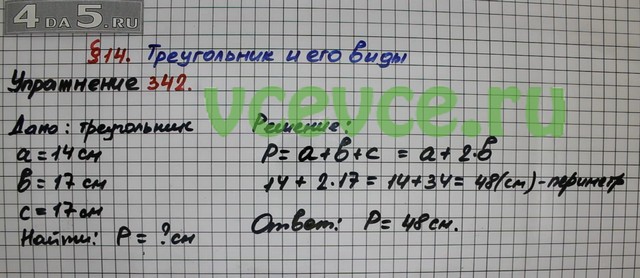 4 DA 5.RU
§14. Треугольник и его виды
Упражнение 342.
vcevce.ru
Дано: треугольник
a = 14 см
в = 17 см
c = 17 см
Найти: P = ? см
Решение:
P = a + в + c = a + 2·в
14 + 2·17 = 14 + 34 = 48 (см) - периметр
Ответ: P = 48 см.